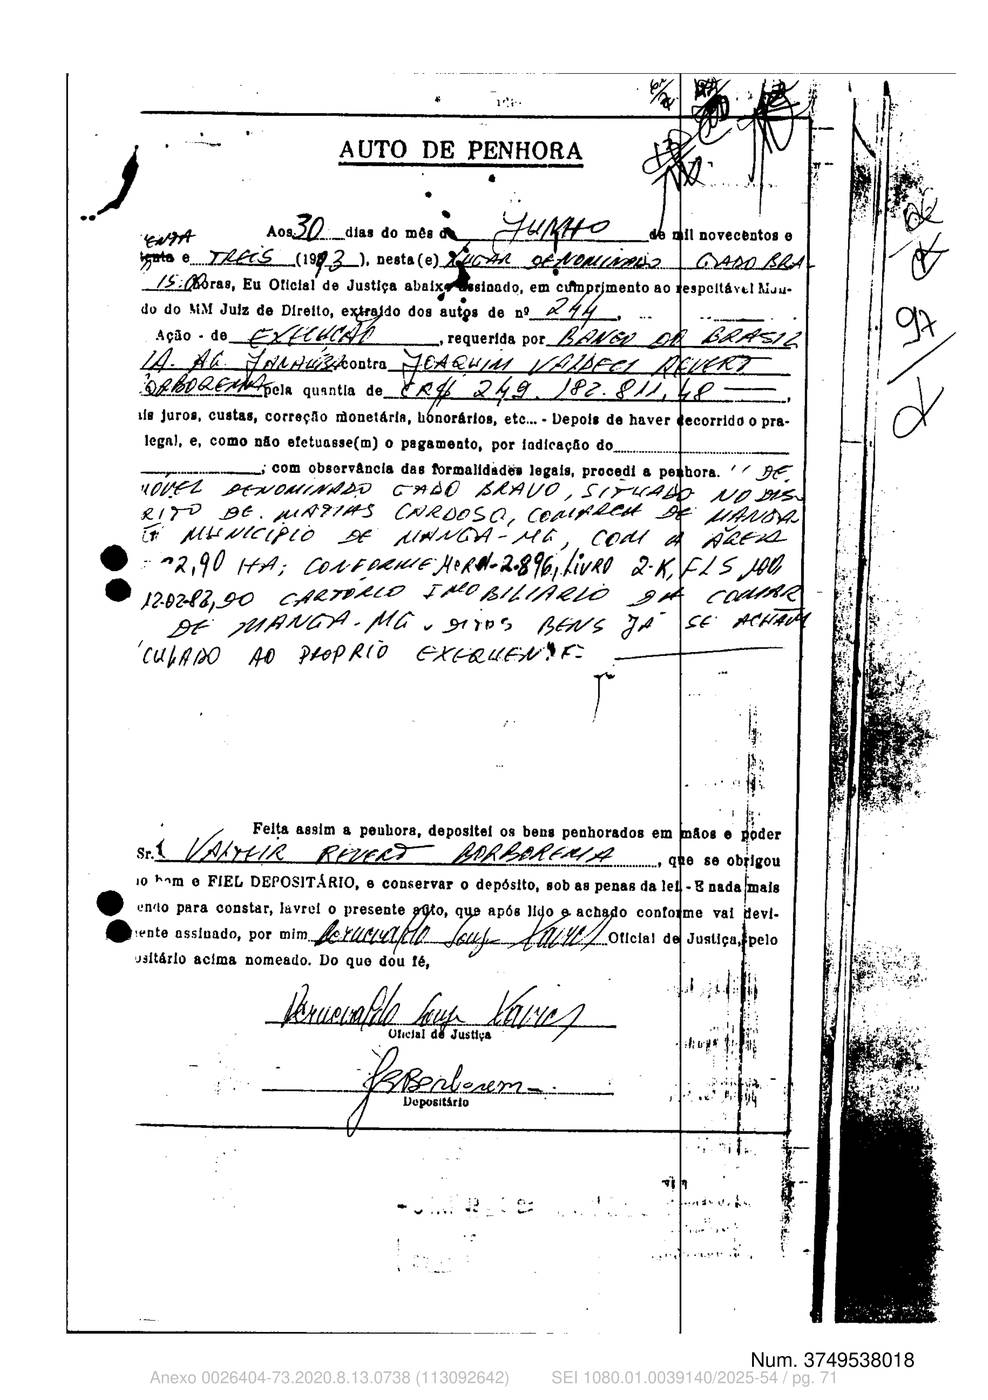 AUTO DE PENHORA
Aos 30 dias do mês de JUNHO de mil novecentos e
ENTA e TREIS (1993), nesta(e) LUGAR DENOMINADO GADO BRA
15:00 horas, Eu Oficial de Justiça abaixo assinado, em cumprimento ao respeitável Man-
do do MM Juiz de Direito, extraído dos autos de nº 244,
Ação - de EXECUÇÃO, requerida por BANCO DO BRASIL
AG. JANAUBA contra JOAQUIM VALDECI REVERT
ORBOREMA pela quantia de CR$ 249.182.811,48
is juros, custas, correção monetária, honorários, etc... - Depois de haver decorrido o pra-
legal, e, como não efetuasse(m) o pagamento, por indicação do
; com observância das formalidades legais, procedi a penhora. '' DE
OVEL DENOMINADO GADO BRAVO, SITUADO NO DIS
RITO DE MATIAS CARDOSO, COMARCA DE MANGA
E MUNICÍPIO DE MANGA-MG, COM A ÁREA
2,90 HA; CONFORME 2.896, LIVRO 2-K, FLS
12-02-83, DO CARTÓRIO IMOBILIARIO DA COMAR
DE MANGA-MG. DITOS BENS JÁ SE ACHAM
CULADO AO PROPRIO EXEQUENTE
Feita assim a penhora, depositei os bens penhorados em mãos e poder
Sr. VALDECIR REVERT BORBOREMA, que se obrigou
io bom e FIEL DEPOSITÁRIO, e conservar o depósito, sob as penas da lei. - E nada mais
endo para constar, lavrei o presente auto, que após lido e achado conforme vai devi-
ente assinado, por mim Oficial de Justiça, pelo
ositário acima nomeado. Do que dou fé,
Oficial de Justiça
Depositário
Num. 3749538018
Anexo 0026404-73.2020.8.13.0738 (113092642) SEI 1080.01.0039140/2025-54 / pg. 71